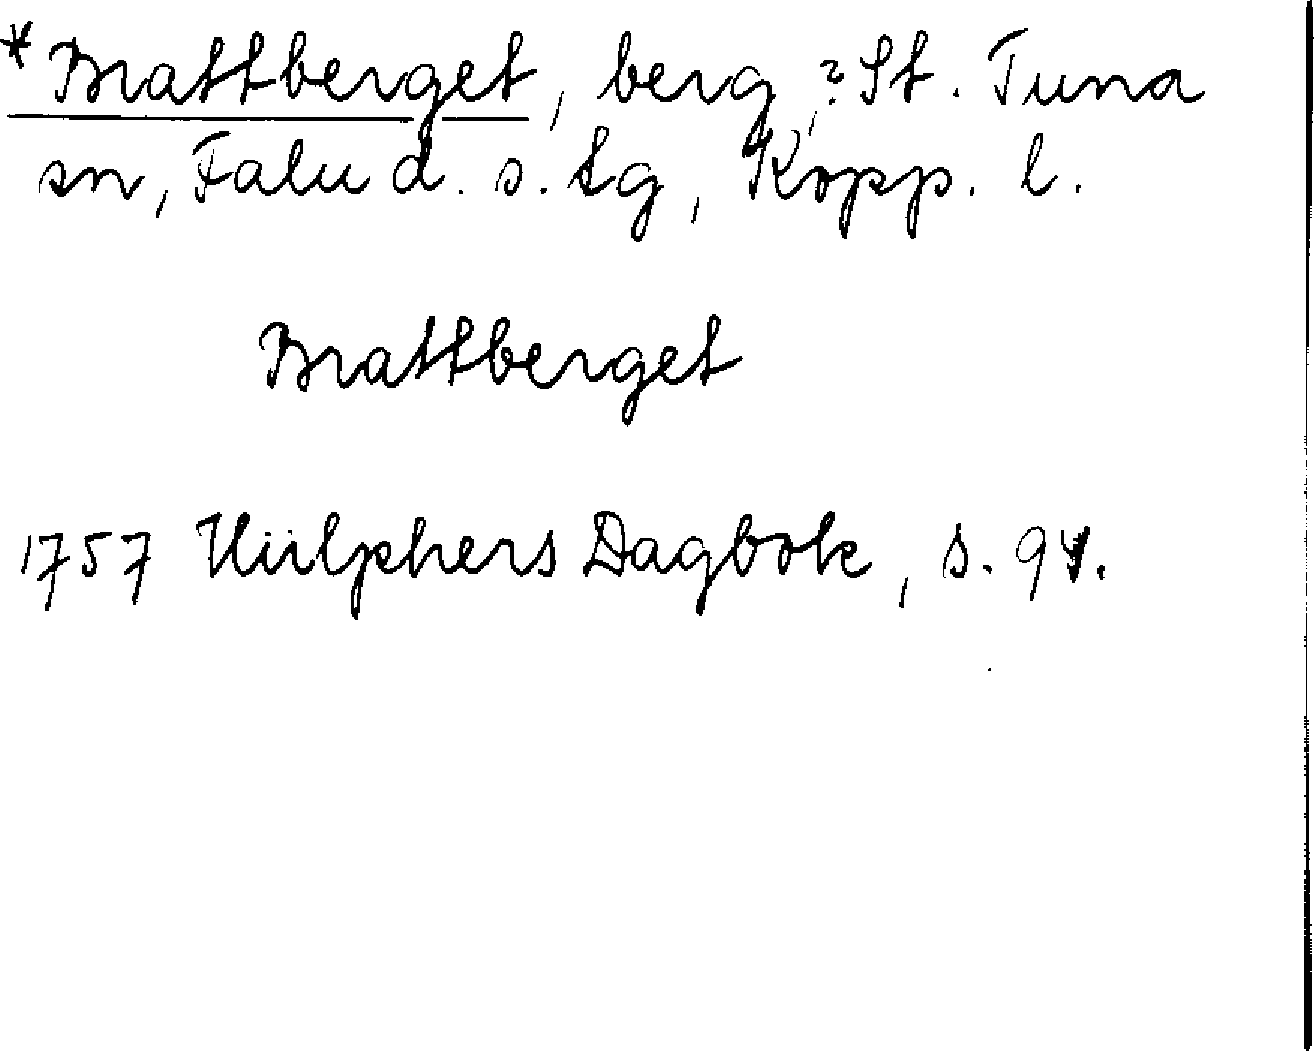 *Brattberget, berg, ?St. Tuna
sn, Falu d. s. tg, Kopp. l.
Brattberget
1757 Hülphers Dagbok, s. 94.